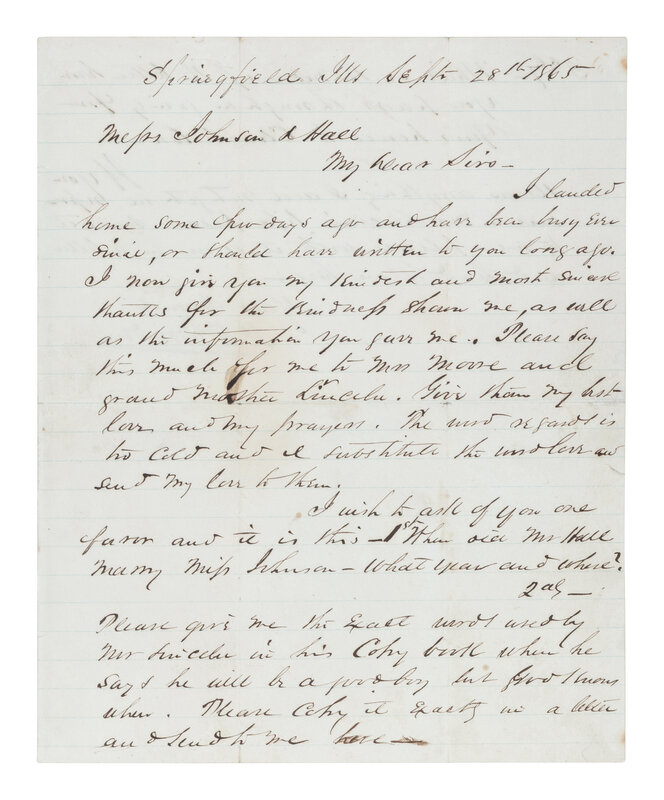 Springfield Ills Sept 28th 1865
Mess Johnson & Hall
My Dear Sirs—
I landed
home some few days ago and have been busy ever
since, or should have written to you long ago.
I now give you my Kindest and most sincere
thanks for the Kindness shown me, as well
as the information you gave me. Please say
this much for me to Mrs Moore and
grand Mother Lincoln. Give them my best
love and my prayers. The word regards is
too cold and I substitute the word love and
send my love to them.
I wish to ask of you one
favor and it is this — 1st When did Mr Hall
marry Miss Johnson — What year and where?
2dly —
Please give me the Exact words used by
Mr Lincoln in his Copy book when he
says he will be a good boy but God Knows
when. Please Copy it Exactly in a letter
and send to me here —